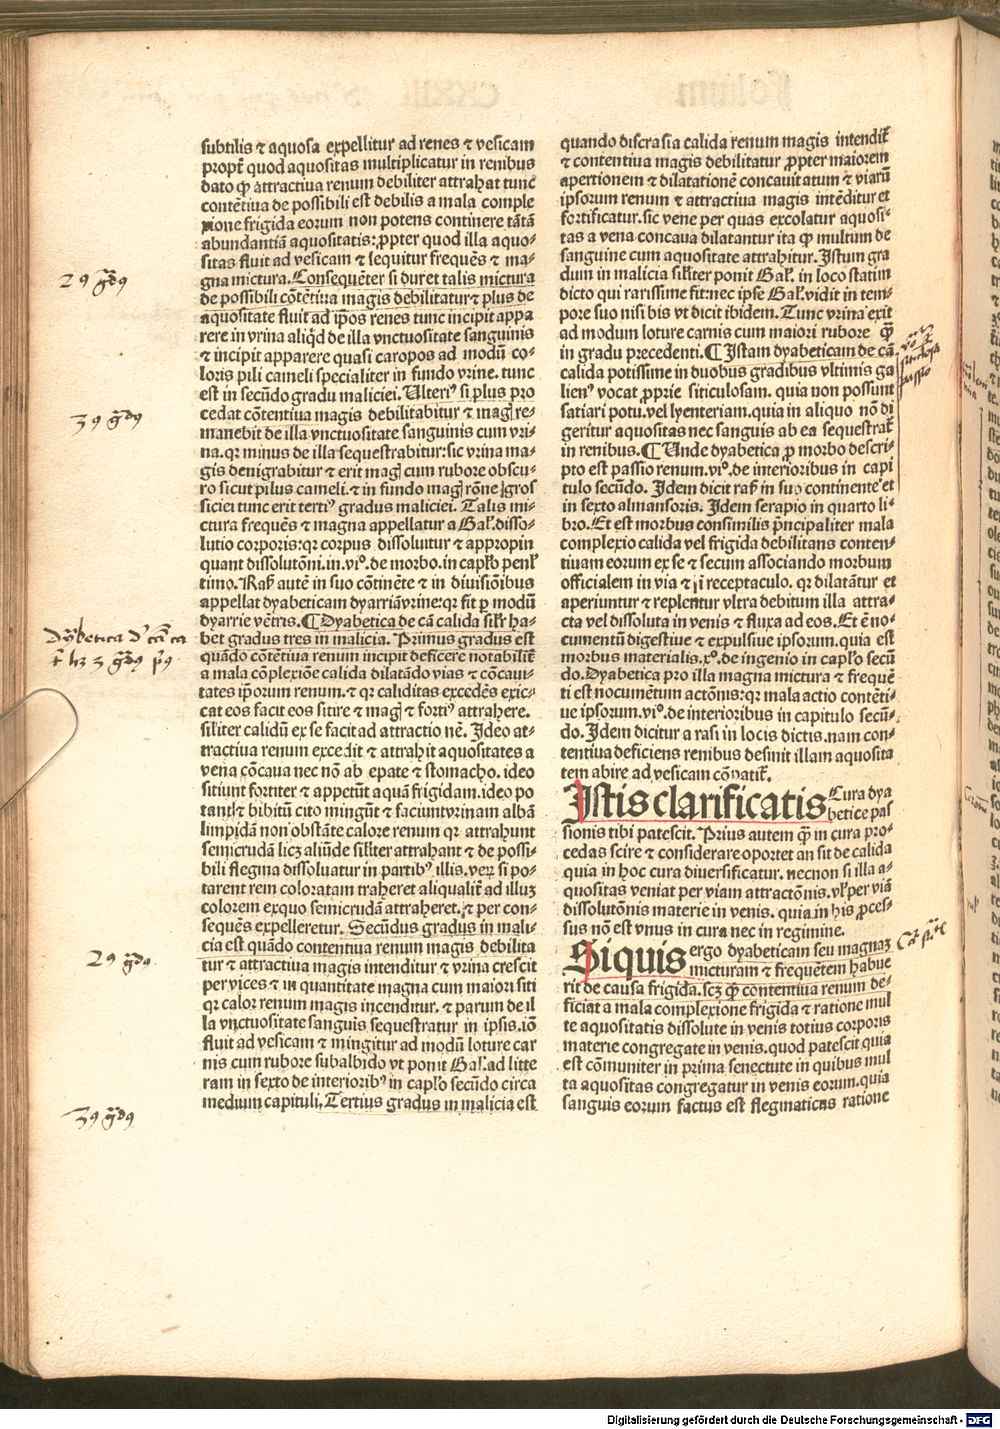 subtilis ⁊ aquosa expellitur ad renes ⁊ vesicam
propt̃ quod aquositas multiplicatur in renibus
dato ꝙ attractiua renum debiliter attrahat tunc
contẽtiua de possibili est debilis a mala comple
xione frigida eorum non potens continere tãtã
abundantiã aquositatis: ꝓpter quod illa aquo⸗
sitas fluit ad vesicam ⁊ sequitur frequẽs ⁊ ma⸗
gna mictura. Consequẽter si duret talis mictura
de possibili cõtẽtiua magis debilitatur ⁊ plus de
aquositate fluit ad ip̃os renes tunc incipit appa
rere in vrina aliq̃d de illa vnctuositate sanguinis
⁊ incipit apparere quasi caropos ad modũ co⸗
loris pili cameli specialiter in fundo vrine. tunc
est in secũdo gradu maliciei. Ulteriꝰ si plus pro
cedat cõtentiua magis debilitabitur ⁊ mag̃ re⸗
manebit de illa vnctuositate sanguinis cum vri⸗
na. qr minus de illa sequestrabitur: sic vrina ma⸗
gis denigrabitur ⁊ erit mag̃ cum rubore obscu⸗
ro sicut pilus cameli. ⁊ in fundo mag̃ rõne gros
siciei tunc erit tertiꝰ gradus maliciei. Talis mi⸗
ctura frequẽs ⁊ magna appellatur a Gal̃. disso⸗
lutio corporis: qr corpus dissoluitur ⁊ appropin
quant dissolutõni. in. viº. de morbo. in cap̃lo penl̃
timo. Ras̃ autẽ in suo cõtinẽte ⁊ in diuisiõibus
appellat dyabeticam dyarriã vrine: qr fit ꝑ modũ
dyarrie vẽtris. ¶ Dyabetica de cã calida sil̃r ha⸗
bet gradus tres in malicia. Primus gradus est
quãdo cõtẽtiua renum incipit deficere notabilit̃
a mala cõplexiõe calida dilatãdo vias ⁊ cõcaui⸗
tates ip̃orum renum. ⁊ qr caliditas excedẽs exic⸗
cat eos facit eos sitire ⁊ mag̃ ⁊ fortiꝰ attrahere.
sil̃iter calidũ ex se facit ad attractionẽ. Ideo at⸗
tractiua renum excedit ⁊ attrahit aquositates a
vena cõcaua nec nõ ab epate ⁊ stomacho. ideo
sitiunt fortiter ⁊ appetũt aquã frigidam. ideo po
tant ⁊ bibitũ cito mingũt ⁊ faciunt vrinam albã
limpidã non obstãte calore renum qr attrahunt
semicrudã licz aliũde sil̃iter attrahant ⁊ de possi⸗
bili flegma dissoluatur in partibꝰ illis. verz si po⸗
tarent rem coloratam traheret aliqualit̃ ad illuz
colorem ex quo semicrudã attraheret. ⁊ per con⸗
sequẽs expelleretur. Secũdus gradus in mali⸗
cia est quãdo contentiua renum magis debilita
tur ⁊ attractiua magis intenditur ⁊ vrina crescit
per vices ⁊ in quantitate magna cum maiori siti
qr calor renum magis incenditur. ⁊ parum de il
la vnctuositate sanguis sequestratur in ipsis. iõ
fluit ad vesicam ⁊ mingitur ad modũ loture car
nis cum rubore subalbido vt ponit Gal̃. ad litte
ram in sexto de interioribꝰ in cap̃lo secũdo circa
medium capituli. Tertius gradus in malicia est
quando discrasia calida renum magis intendit̃
⁊ contentiua magis debilitatur ꝓpter maiorem
apertionem ⁊ dilatationẽ concauitatum ⁊ viarũ
ipsorum renum ⁊ attractiua magis intẽditur et
fortificatur. sic vene per quas excolatur aquosi⸗
tas a vena concaua dilatantur ita ꝙ multum de
sanguine cum aquositate attrahitur. Istum gra
dum in malicia sil̃iter ponit Gal̃. in loco statim
dicto qui rarissime fit: nec ipse Gal̃. vidit in tem⸗
pore suo nisi bis vt dicit ibidem. Tunc vrina exit
ad modum loture carnis cum maiori rubore q̃
in gradu precedenti. ¶ Istam dyabeticam de cã
calida potissime in duobus gradibus vltimis ga
lienꝰ vocat ꝓprie siticulosam. quia non possunt
satiari potu. vel lyenteriam. quia in aliquo nõ di
geritur aquositas nec sanguis ab ea sequestrat̃
in renibus. ¶ Unde dyabetica ꝓ morbo descri⸗
pto est passio renum. viº. de interioribus in capi
tulo secũdo. Idem dicit ras̃ in suo continente et
in sexto almansoris. Idem serapio in quarto li⸗
bro. Et est morbus consimilis p̃ncipaliter mala
complexio calida vel frigida debilitans conten⸗
tiuam eorum ex se ⁊ secum associando morbum
officialem in via ⁊ ĩ receptaculo. qr dilatãtur et
aperiuntur ⁊ replentur vltra debitum illa attra⸗
cta vel dissoluta in venis ⁊ fluxa ad eos. Et ẽ no⸗
cumentũ digestiue ⁊ expulsiue ipsorum. quia est
morbus materialis. xº. de ingenio in cap̃lo secũ
do. Dyabetica pro illa magna mictura ⁊ frequẽ
ti est nocumẽtum actõnis: qr mala actio contẽti⸗
ue ipsorum. viº. de interioribus in capitulo secũ⸗
do. Idem dicitur a rasi in locis dictis. nam con⸗
tentiua deficiens renibus desinit illam aquosita
tem abire ad vesicam cõpatit̃.
Istis clarificatis Cura dya
betice pas
sionis tibi patescit. Prius autem q̃ in cura pro⸗
cedas scire ⁊ considerare oportet an sit de calida
quia in hoc cura diuersificatur. necnon si illa a⸗
quositas veniat per viam attractõnis. vl̃ per viã
dissolutõnis materie in venis. quia in his ꝓces⸗
sus nõ est vnus in cura nec in regimine.
Siquis ergo dyabeticam seu magnaz
micturam ⁊ frequẽtem habue
rit de causa frigida. scz ꝙ contentiua renum de⸗
ficiat a mala complexione frigida ⁊ ratione mul
te aquositatis dissolute in venis totius corporis
materie congregate in venis. quod patescit quia
est cõmuniter in prima senectute in quibus mul
ta aquositas congregatur in venis eorum. quia
sanguis eorum factus est flegmaticus ratione
2ꝰ gradꝰ
3ꝰ gradꝰ
2ꝰ gradꝰ
3ꝰ gradꝰ
Digitalisierung gefördert durch die Deutsche Forschungsgemeinschaft - DFG